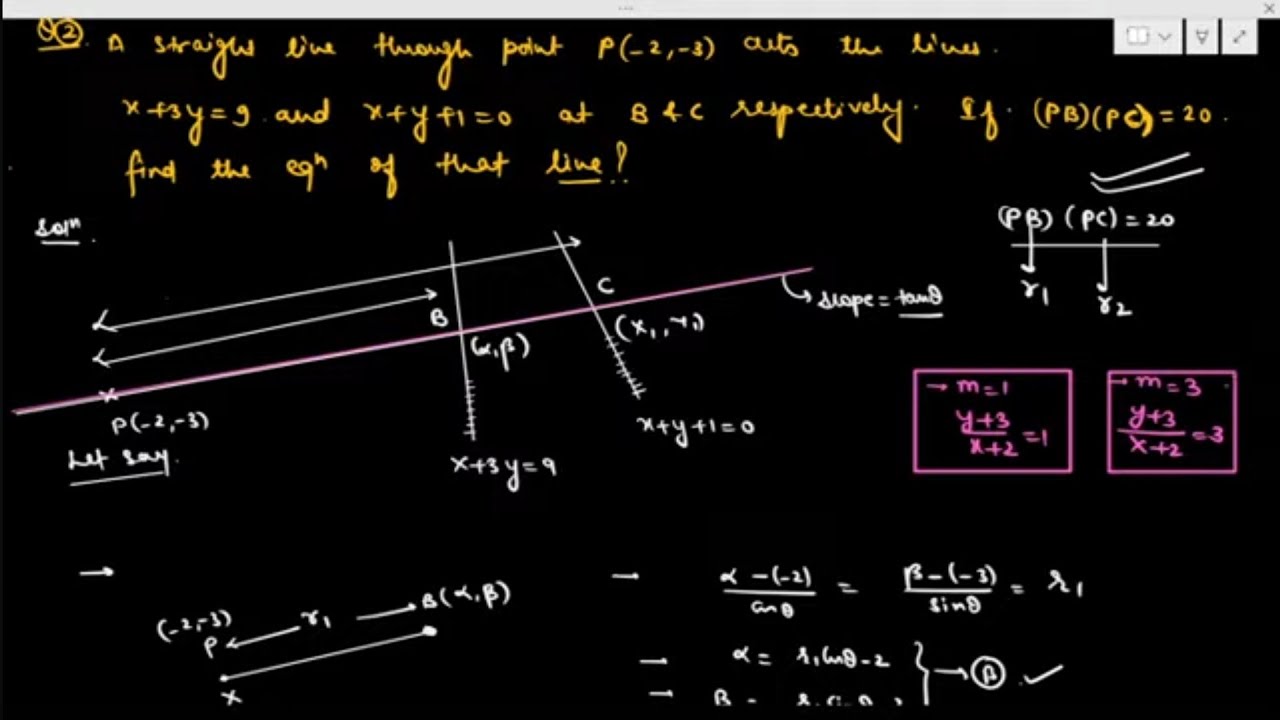 Q② A straight line through point P(-2,-3) cuts the lines.
x+3y=9 and x+y+1=0 at B & C respectively. If (PB)(PC)=20.
find the eqⁿ of that line!
Solⁿ.
(PB) (PC) = 20
r₁ r₂
C
B
slope = tanθ
(α,β)
(x₁,y₁)
P(-2,-3)
x+y+1=0
x+3y=9
Let say.
→ m=1
y+3
x+2
=1
→ m=3
y+3
x+2
=3
→
(-2,-3)
P
r₁
B(α,β)
x
— α-(-2) = β-(-3) = r₁
cosθ sinθ
— α = r₁cosθ-2
→ β